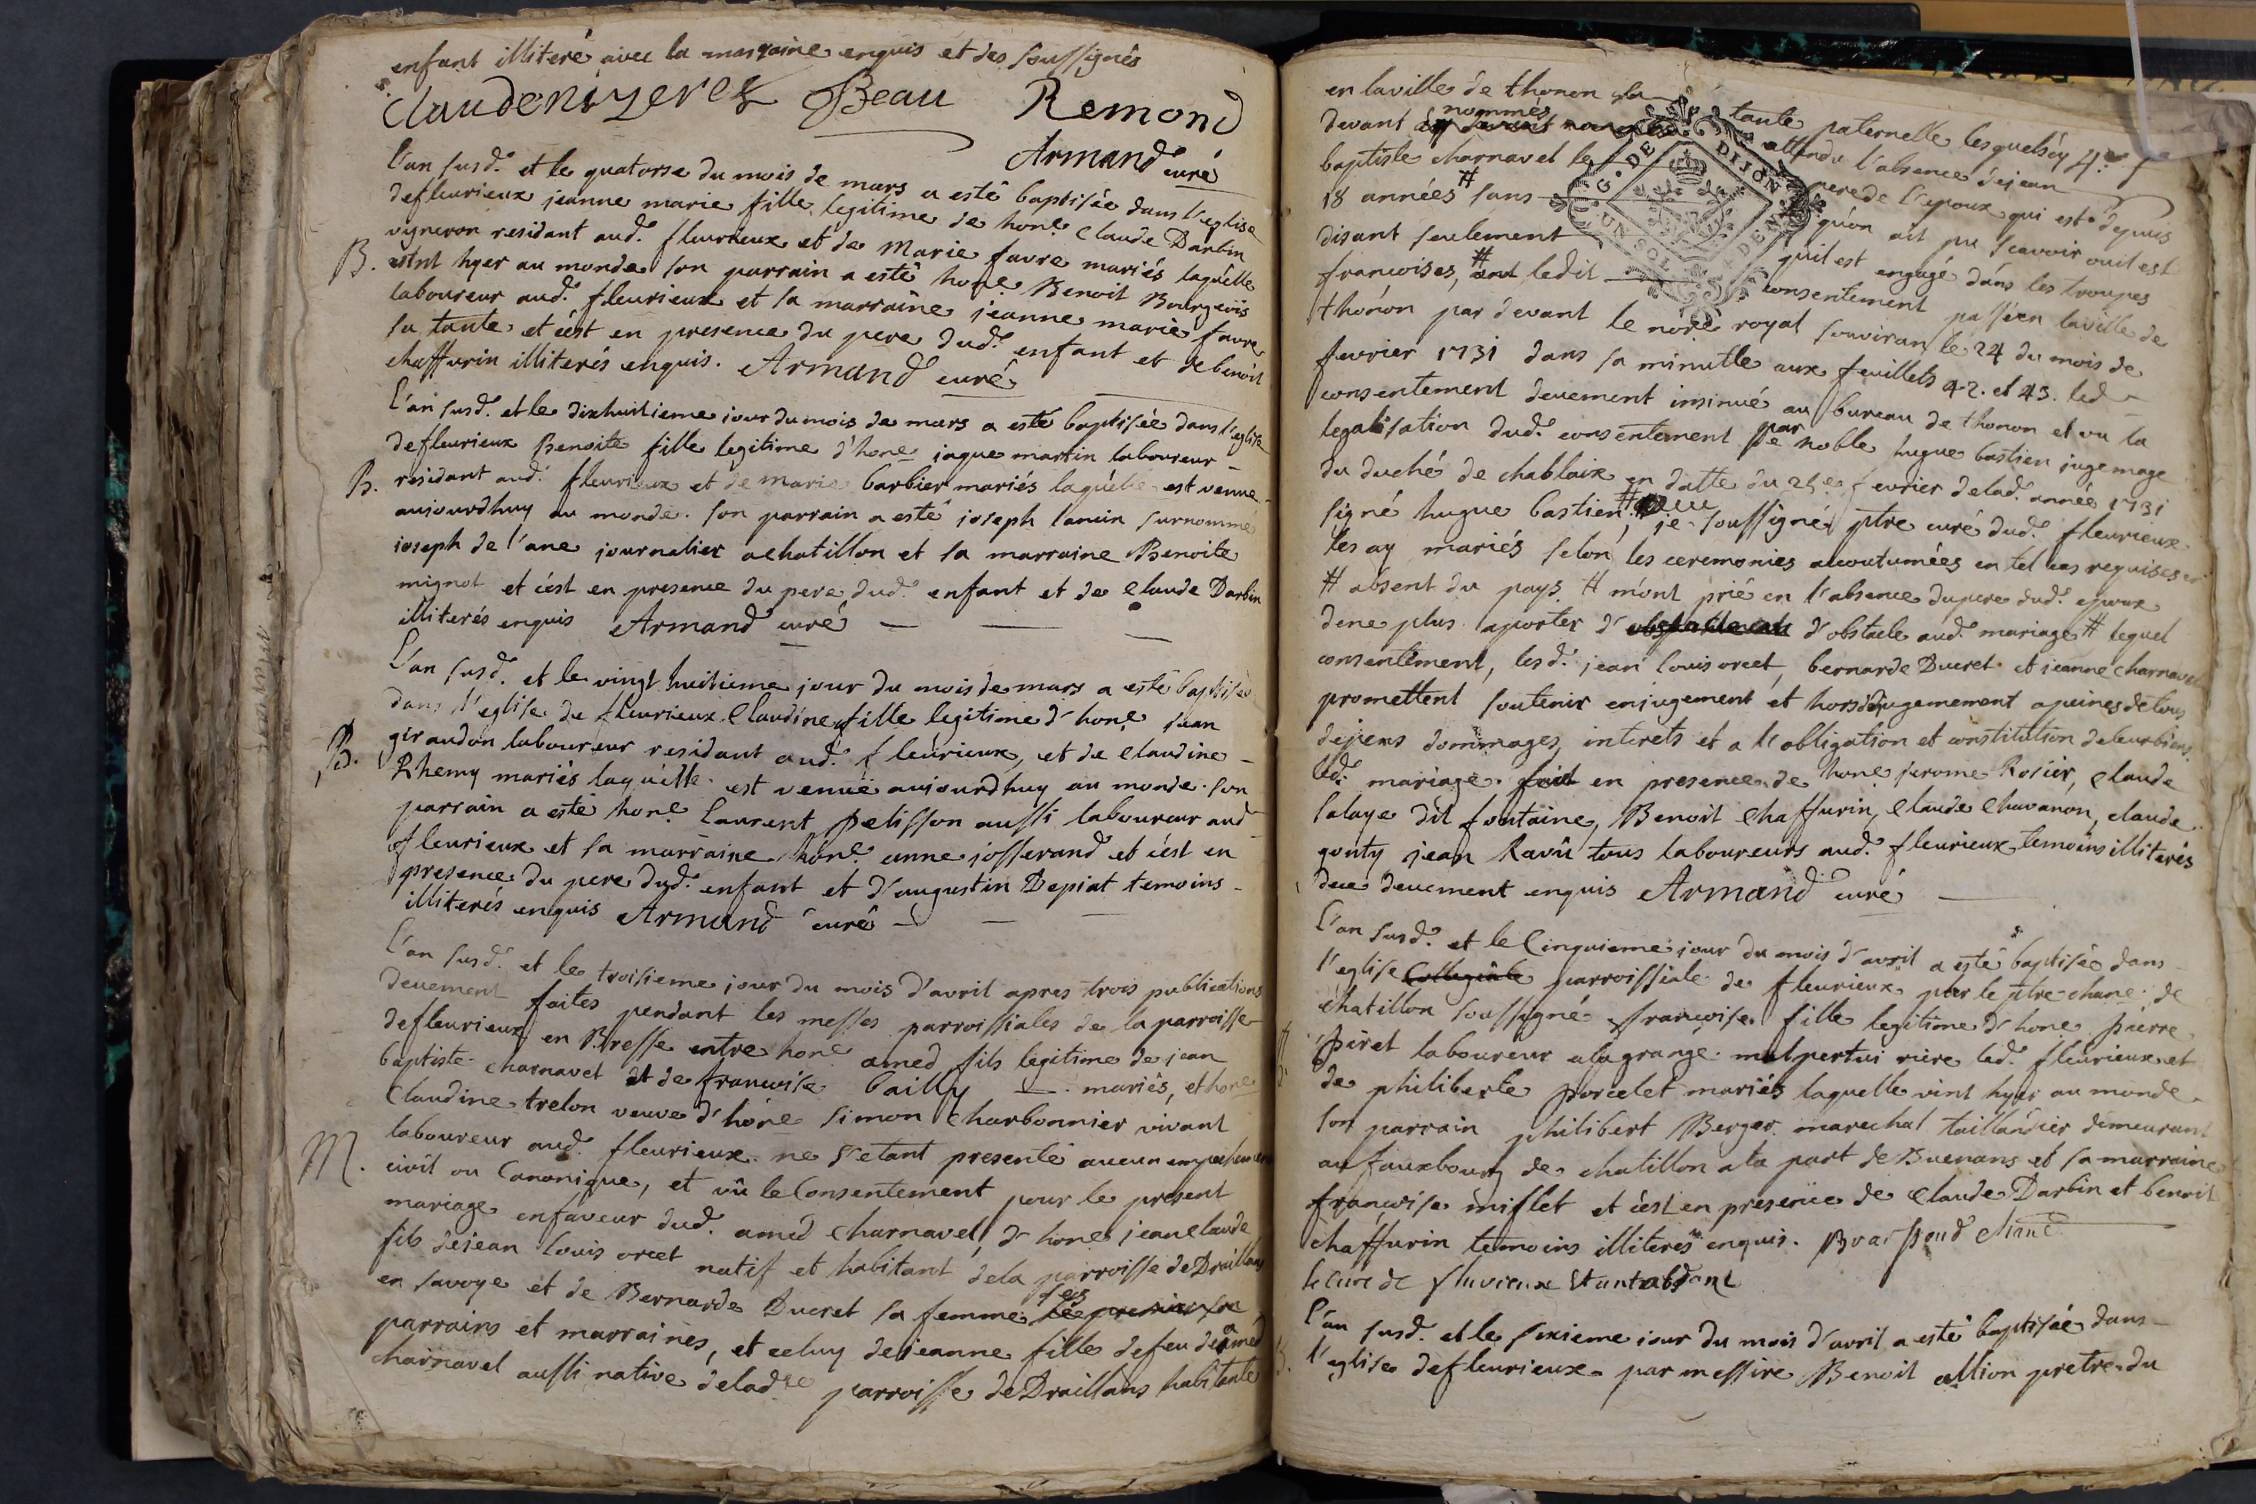 enfant illiteré avec la marraine enquis et des soussignés
Claude nizerel Beau Remond
Armand curé
L'an susd. et le quatorse du mois de mars a esté baptisée dans l'eglise
de fleurieux jeanne marie fille legitime de hone Claude Darbin
vigneron residant aud. fleurieux et de Marie favre mariés laquelle
B. vint hyer au monde son parrain a esté hone Benoit Bourgeois
laboureur aud. fleurieux et sa marraine jeanne marie favre
sa tante et c'est en presence du pere dud. enfant et de benoit
chaffurin illiterés enquis. Armand curé
L'an susd. et le dixhuitieme jour du mois de mars a esté baptisée dans l'eglise
de fleurieux Benoite fille legitime d'hone jaque martin laboureur
B. residant aud. fleurieux et de marie barbier mariés laquelle est venue
aujourdhuy au monde. son parrain a esté joseph surnommé
joseph de l'ane journalier a chatillon et sa marraine Benoite
mignot et c'est en presence du pere dud. enfant et de Claude Darbin
illiterés enquis Armand curé
L'an susd. et le vingt huitieme jour du mois de mars a esté baptisée
dans l'eglise de fleurieux Claudine fille legitime d'hone jean
B. giraudon laboureur residant aud. fleurieux, et de Claudine
Rhemy mariés laquelle est venuë aujourdhuy au monde. son
parrain a esté hone Laurent pelisson aussi laboureur aud.
fleurieux et sa marraine hone anne josserand et c'est en
presence du pere dud. enfant et d'augustin Depiat temoins
illiterés enquis Armand curé
L'an susd. et le troisieme jour du mois d'avril apres trois publications
deuement faites pendant les messes parroissiales de la parroisse
de fleurieux en Bresse entre hone amed fils legitime de jean
baptiste charnavel et de francoise bailly mariés, et hone
Claudine trelon veuve d'hone simon Charbonnier vivant
M. laboureur aud. fleurieux ne s'etant presenté aucun empechement
civil ou Canonique, et vû le Consentement pour le present
mariage en faveur dud. amed Charnavel, d'hone jean claude
fils de jean louis orcet natif et habitant de la parroisse de Draillans
en savoye et de Bernarde Ducret sa femme ses
parrains et marraines, et celuy de jeanne fille de feu de amed
charnavel aussi native de lad. parroisse de Draillans habitante
en la ville de thonon sa tante paternelle lesquels
devant nommés attendu l'absence de jean
baptiste charnavel le pere de l'epoux qui est depuis
18 années # sans qu'on ait pu scavoir ou il est
disant seulement qu'il est engagé dans les troupes
francoises, # ledit consentement passé en la ville de
thonon par devant le nore royal souviran le 24 du mois de
fevrier 1731 dans sa minutte aux feuillets 42. et 43. led
consentement deuement insinué au bureau de thonon et vu la
legalisation dud. consentement par noble hugue bastien juge mage
du duché de chablaix en datte du fevrier de lad. année 1731
signé hugue bastien, # je soussigné ptre curé dud. fleurieux
les ay mariés selon les ceremonies accoutumées en tel cas requises
# absent du pays # m'ont prié en l'absence du pere dud. epoux
de ne plus aporter d'obstacle aud. mariage # lequel
consentement, lesd. jean louis orcet, bernarde Ducret et jeanne charnavel
promettent soutenir en jugement et hors de jugemement a peines de tous
depens dommages, interets et a l'obligation et constitution de leurs biens.
led. mariage fait en presence de hone jerome Rosier, Claude
salaye dit fontaine, Benoit Chaffurin, Claude Chavanon, claude
gonty jean Ravû tous laboureurs aud. fleurieux temoins illiterés
deuement enquis Armand curé
L'an susd. et le Cinquieme jour du mois d'avril a esté baptisée dans
l'eglise Collegiale parroissiale de fleurieux par le ptre chane de
chatillon soussigné francoise fille legitime d'hone pierre
Piret laboureur a la grange malpertui riere led. fleurieux et
de philiberte porcelet mariés laquelle vint hyer au monde
son parrain philibert Berger marechal taillandier demeurant
au fauxbourg de chatillon a la part de Buenans et sa marraine
francoise miflet et c'est en presence de Claude Darbin et benoit
chaffurin temoins illiterés enquis. chane
le Curé de fluvieux Etant absent
L'an susd. et le sixieme jour du mois d'avril a esté baptisée dans
B. l'eglise de fleurieux par messire Benoit allion pretre du
G. DE DIJON
UN SOL